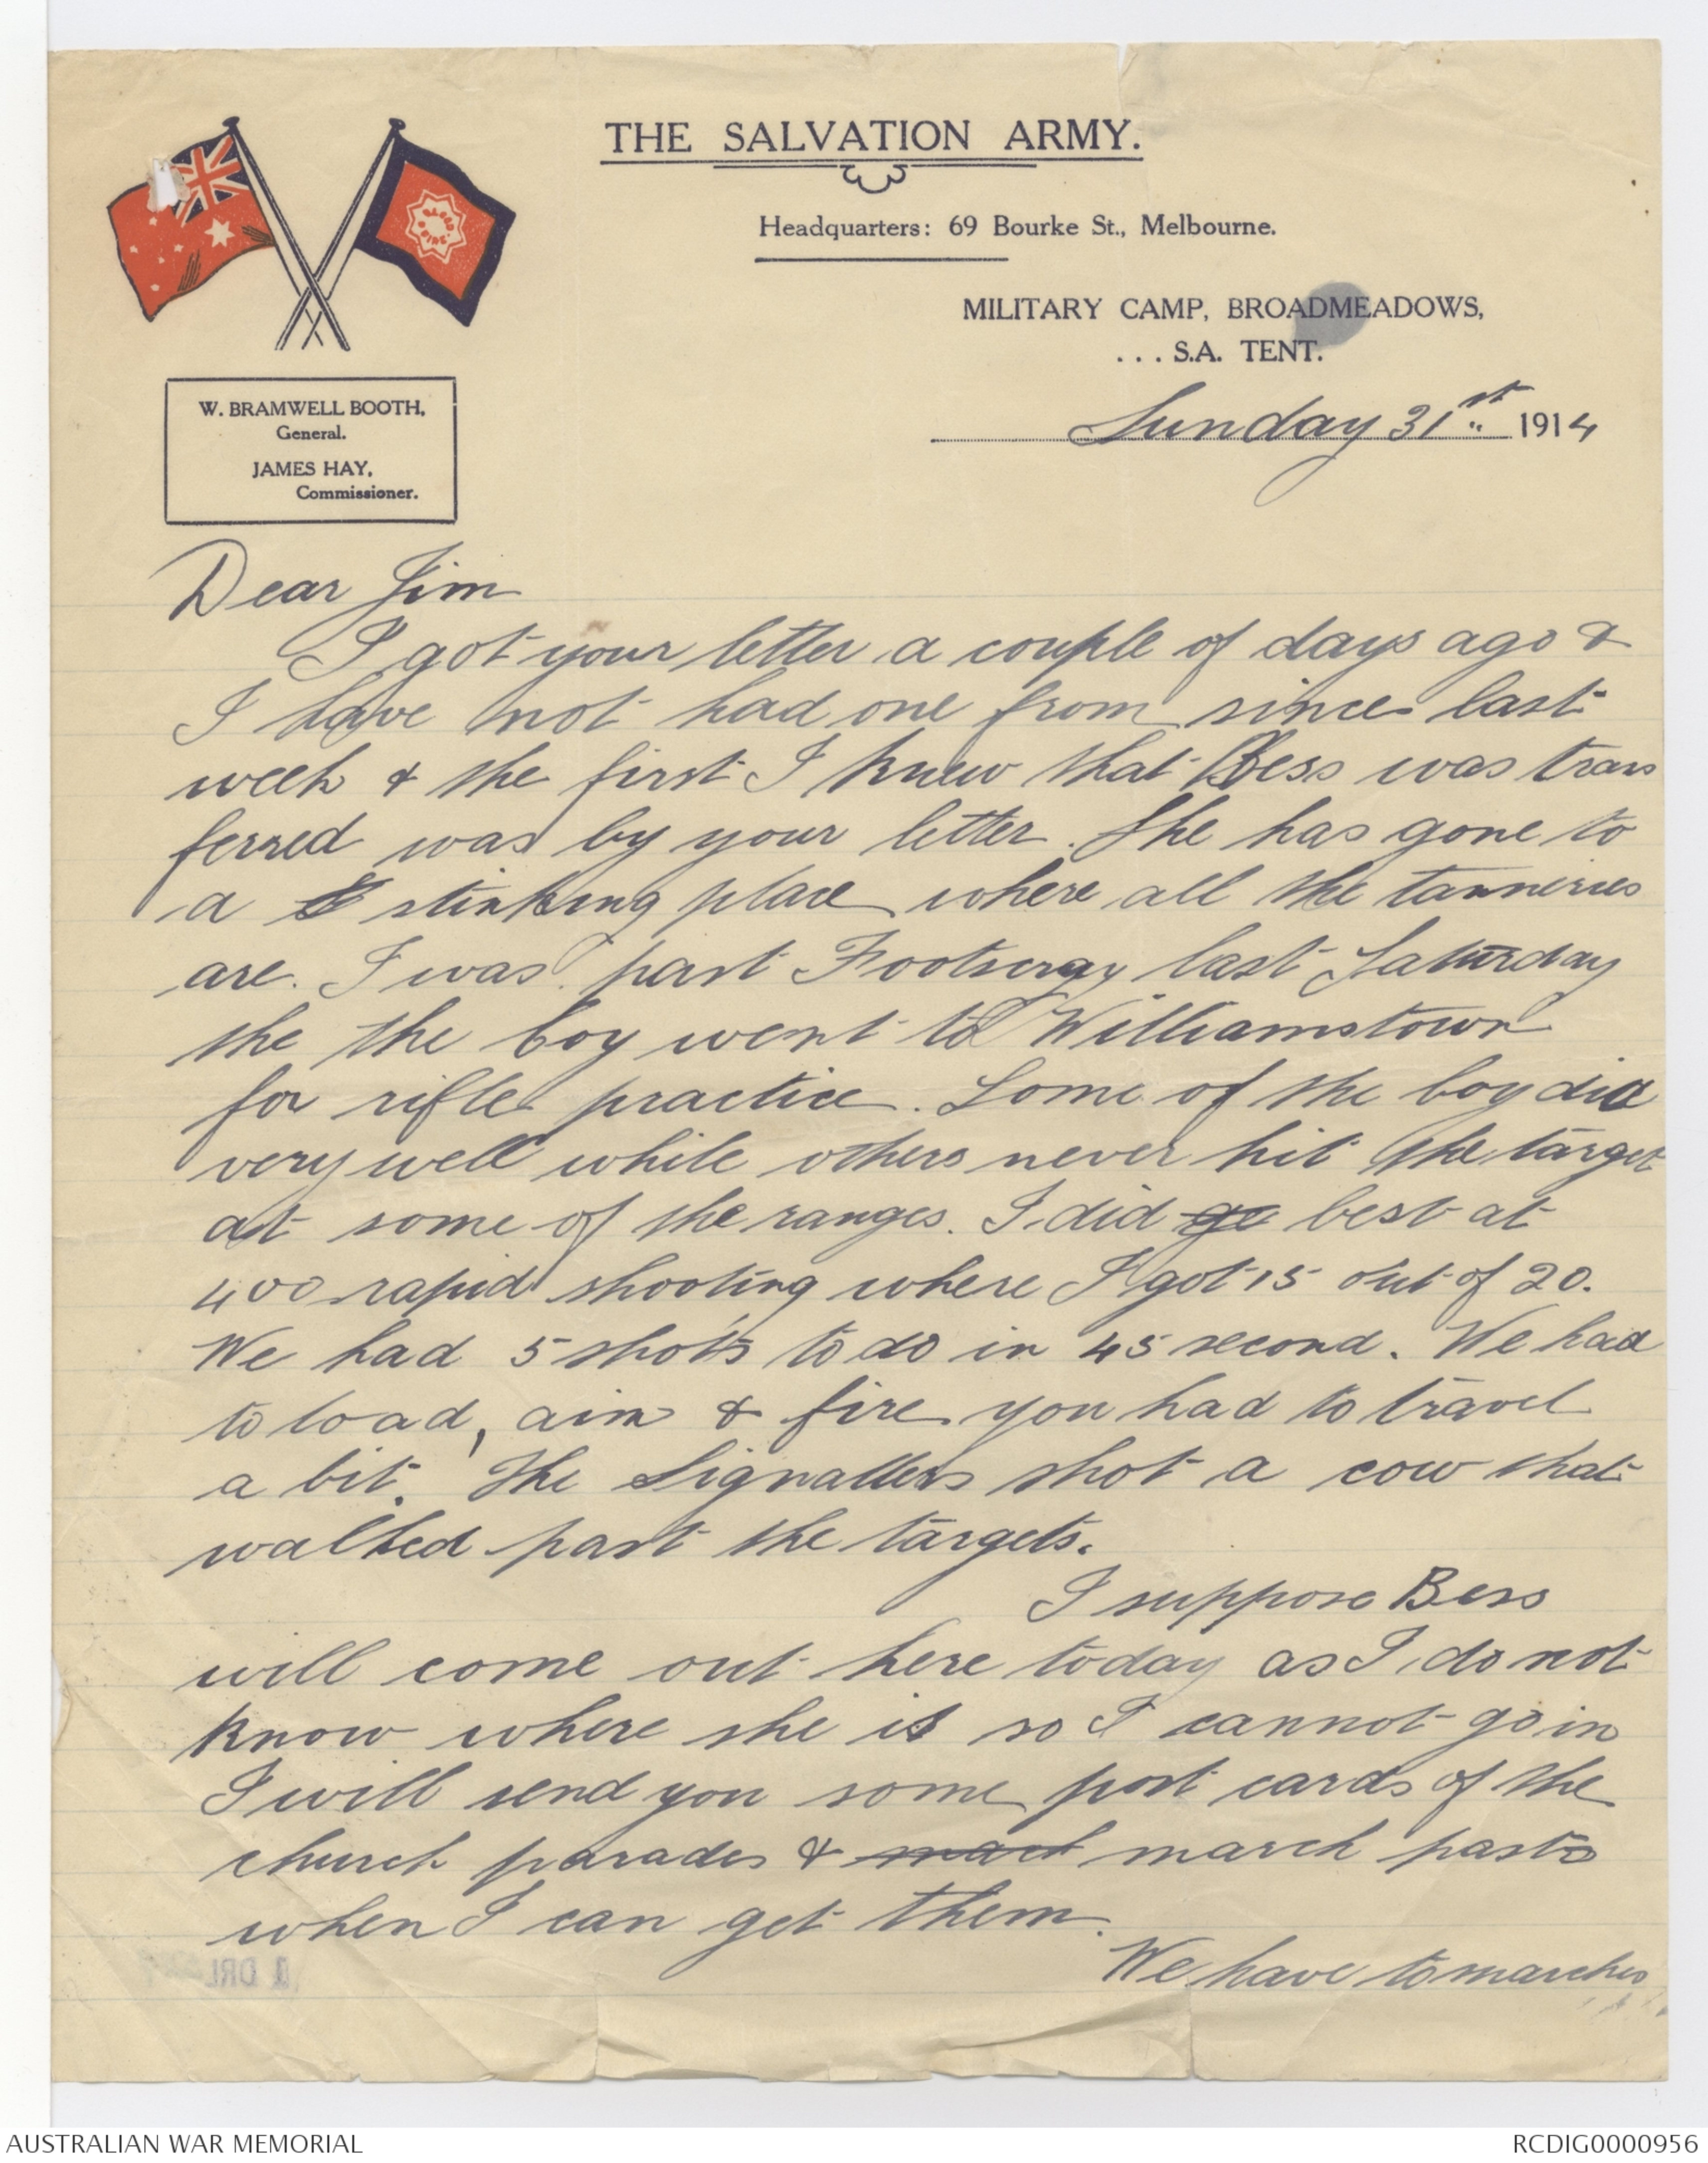 THE SALVATION ARMY.
Headquarters: 69 Bourke St., Melbourne.
MILITARY CAMP, BROADMEADOWS,
... S.A. TENT.
Sunday 31st 1914
W. BRAMWELL BOOTH,
General.
JAMES HAY,
Commissioner.
Dear Jim
I got your letter a couple of days ago &
I have not had one from since last
week & the first I knew that Bess was trans
ferred was by your letter. She has gone to
a stinking place where all the tanneries
are. I was past Footscray last Saturday
the the boy went to Williamstown
for rifle practice. Some of the boy did
very well while others never hit the target
at some of the ranges. I did go best at
400 rapid shooting where I got 15 out of 20.
We had 5 shots to do in 45 second. We had
to load, aim & fire you had to travel
a bit. The Signallers shot a cow that
walked past the targets.
I suppose Bess
will come out here today as I do not
know where she is so I cannot go in
I will send you some post cards of the
church parades & mach march pasts
when I can get them.
We have to marches
1 DRL
AUSTRALIAN WAR MEMORIAL
RCDIG0000956